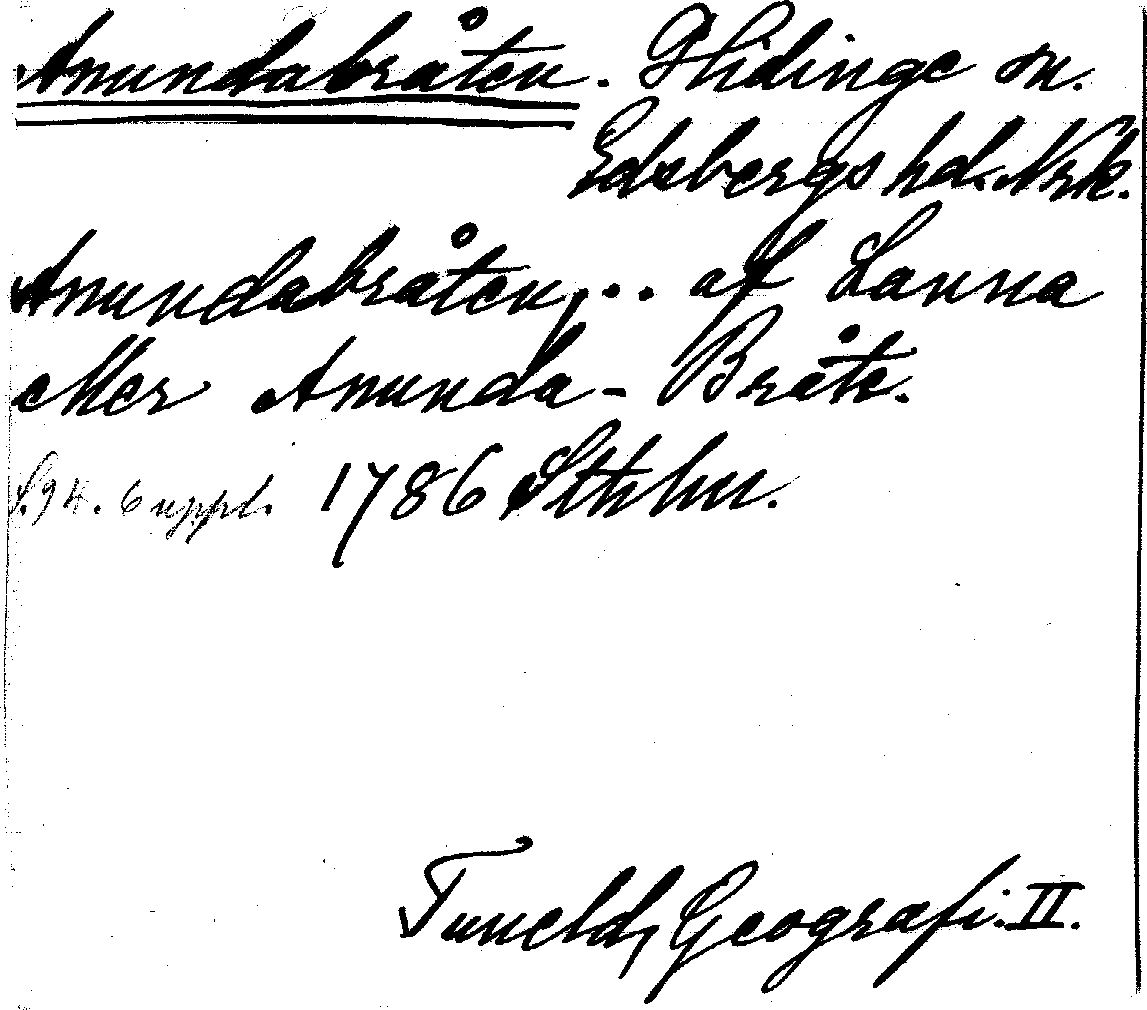 Anundabråten. Glidinge sn.
Edsbergs hd. Nrk.
Anundabråten, .. af Lanna
eller Anunda-Bråte.
S. 94. 6 uppl. 1786 Sthlm.
Tuneld, Geografi. II.